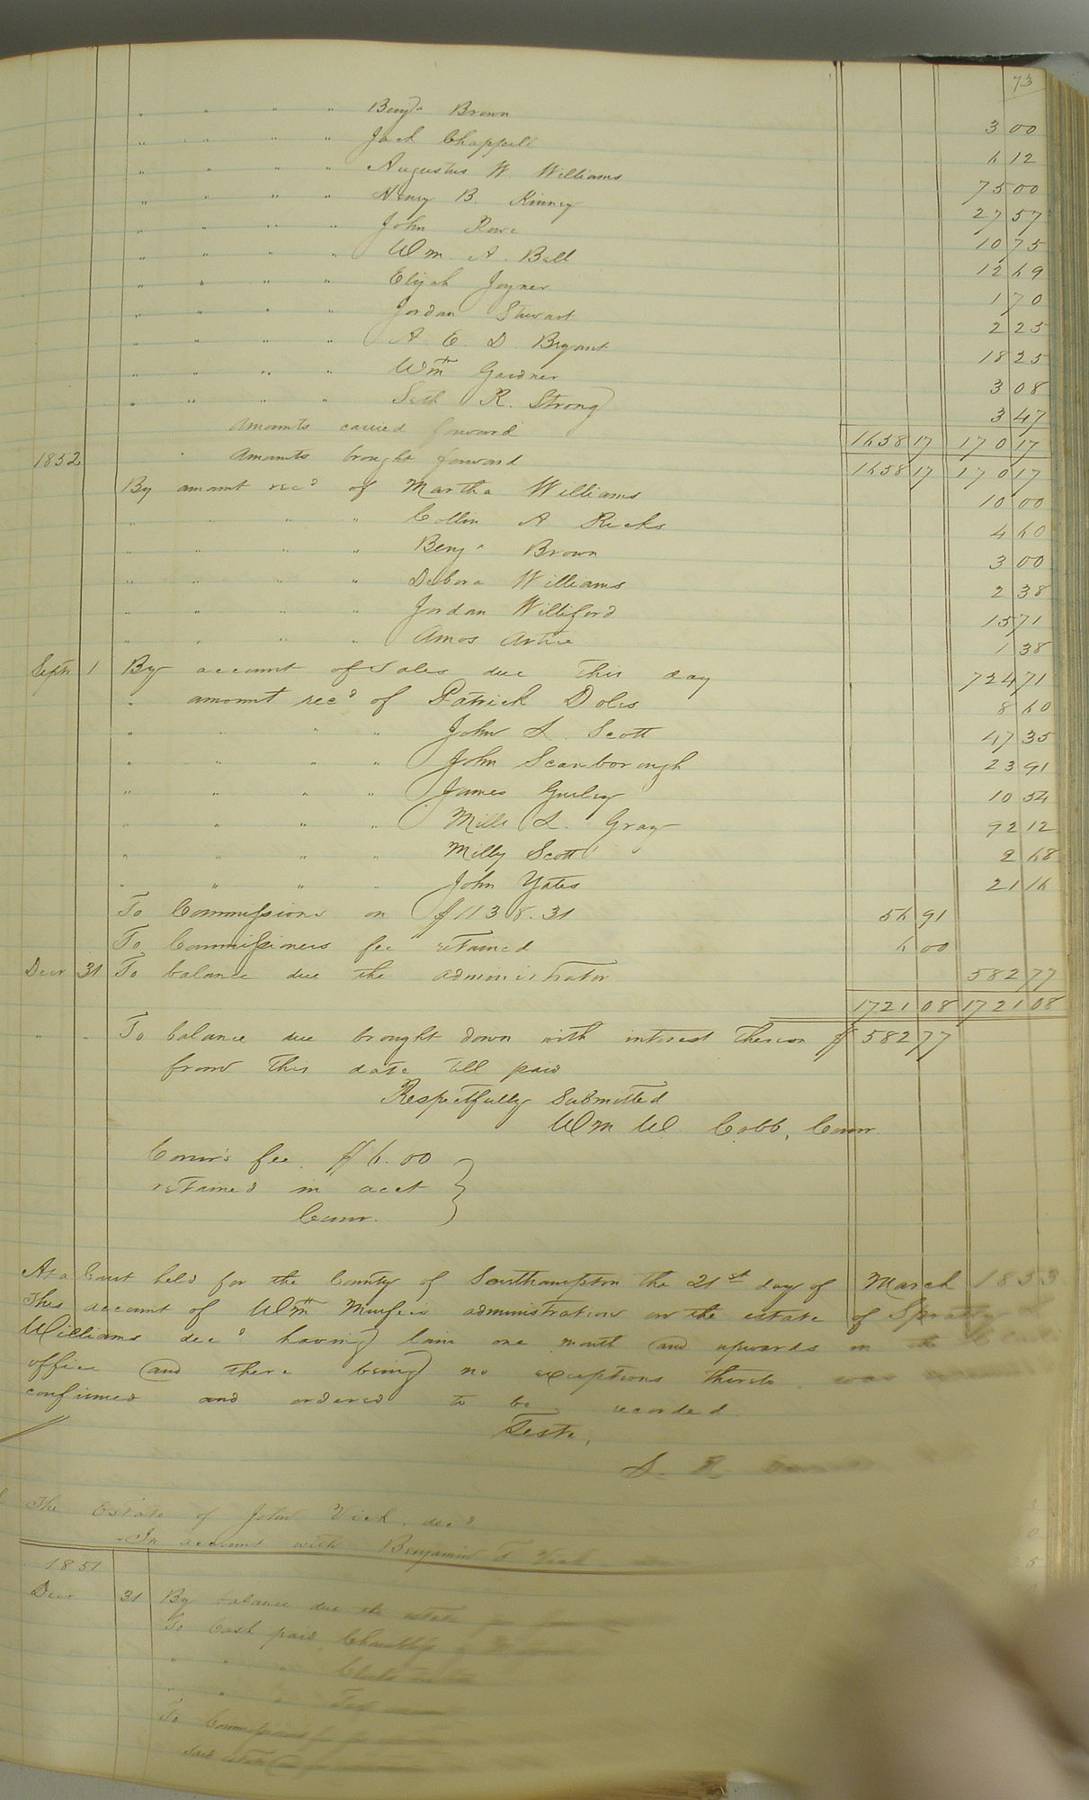 73
" " " " Benja Brown 3 00
" " " " Jack Chappell 6 12
" " " " Augustus W. Williams 75 00
" " " " Henry B. Kinney 27 57
" " " " John Rowe 10 75
" " " " Wm. A. Bell 12 69
" " " " Elijah Joyner 1 70
" " " " Jordan Stewart 2 25
" " " " A. E. D. Bryant 18 25
" " " " Wm Gardner 3 08
" " " " Seth R. Strong 3 47
Amounts carried forward 1658 17 170 17
1852 " Amounts brought forward 1658 17 170 17
By amount recd of Martha Williams 10 00
" " " " Collin A Ricks 4 60
" " " " Benja Brown 3 00
" " " " Debora Williams 2 38
" " " " Jordan Williford 15 71
" " " " Amos Artis 1 38
Septr 1 By account of Sales due this day 724 71
" amount recd of Patrick Doles 8 60
" " " " John S. Scott 47 35
" " " " John Scarborough 23 91
" " " " James Gurley 10 54
" " " " Mills L. Gray 92 12
" " " " Milly Scott 2 68
" " " " John Yates 21 16
To Commissions on $1138.31 56 91
To Commissioners fee retained 6 00
Decr 31 To balance due the administrator 582 77
1721 08 1721 08
" " To balance due brought down with interest thereon $ 582 77
from this date till paid
Respectfully Submitted
Wm W Cobb, Comr.
Comr's fee $6.00
retained in acct
Comr.
At a Court held for the County of Southampton the 21st day of March 1853
This account of Wm administration on the estate of
Williams decd having lain one month and upwards in the
office and there being no exceptions thereto was
confirmed and ordered to be recorded
Teste,
The Estate of John Vick decd
In account with Benjamin Vick
1851
Decr 31 By balance due the estate
To Cash paid
To